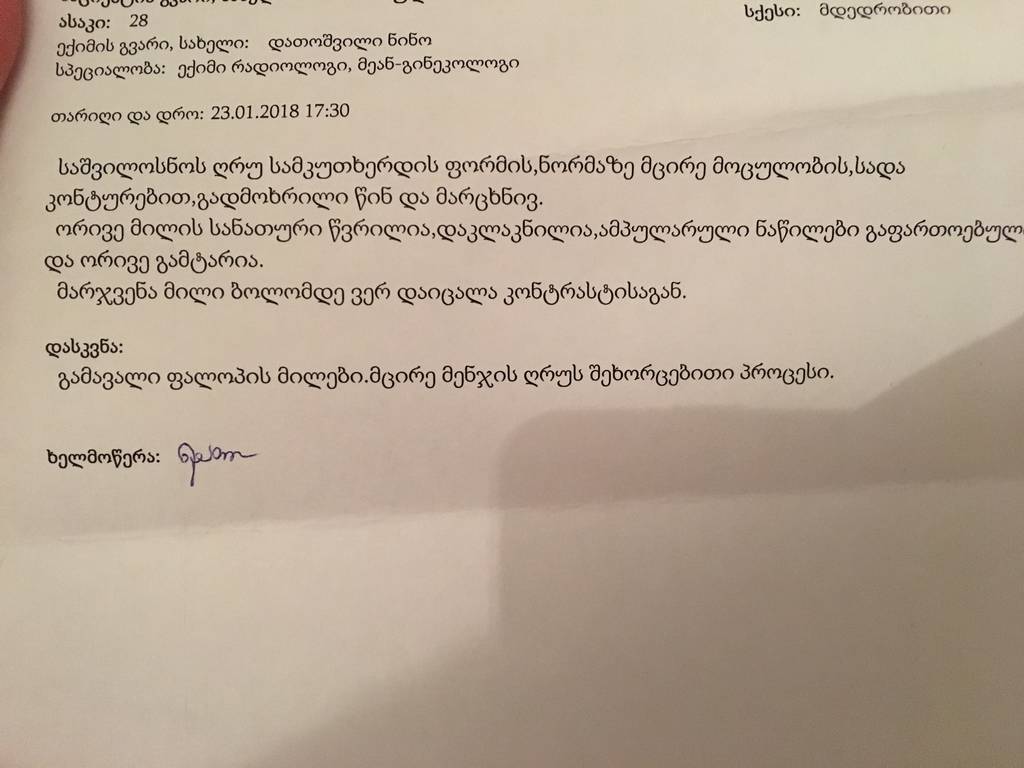 ასაკი: 28
სქესი: მდედრობითი
ექიმის გვარი, სახელი: დათოშვილი ნინო
სპეციალობა: ექიმი რადიოლოგი, მეან-გინეკოლოგი
თარიღი და დრო: 23.01.2018 17:30
საშვილოსნოს ღრუ სამკუთხერდის ფორმის,ნორმაზე მცირე მოცულობის,სადა
კონტურებით,გადმოხრილი წინ და მარცხნივ.
ორივე მილის სანათური წვრილია,დაკლაკნილია,ამპულარული ნაწილები გაფართოებულ
და ორივე გამტარია.
მარჯვენა მილი ბოლომდე ვერ დაიცალა კონტრასტისაგან.
დასკვნა:
გამავალი ფალოპის მილები.მცირე მენჯის ღრუს შეხორცებითი პროცესი.
ხელმოწერა: